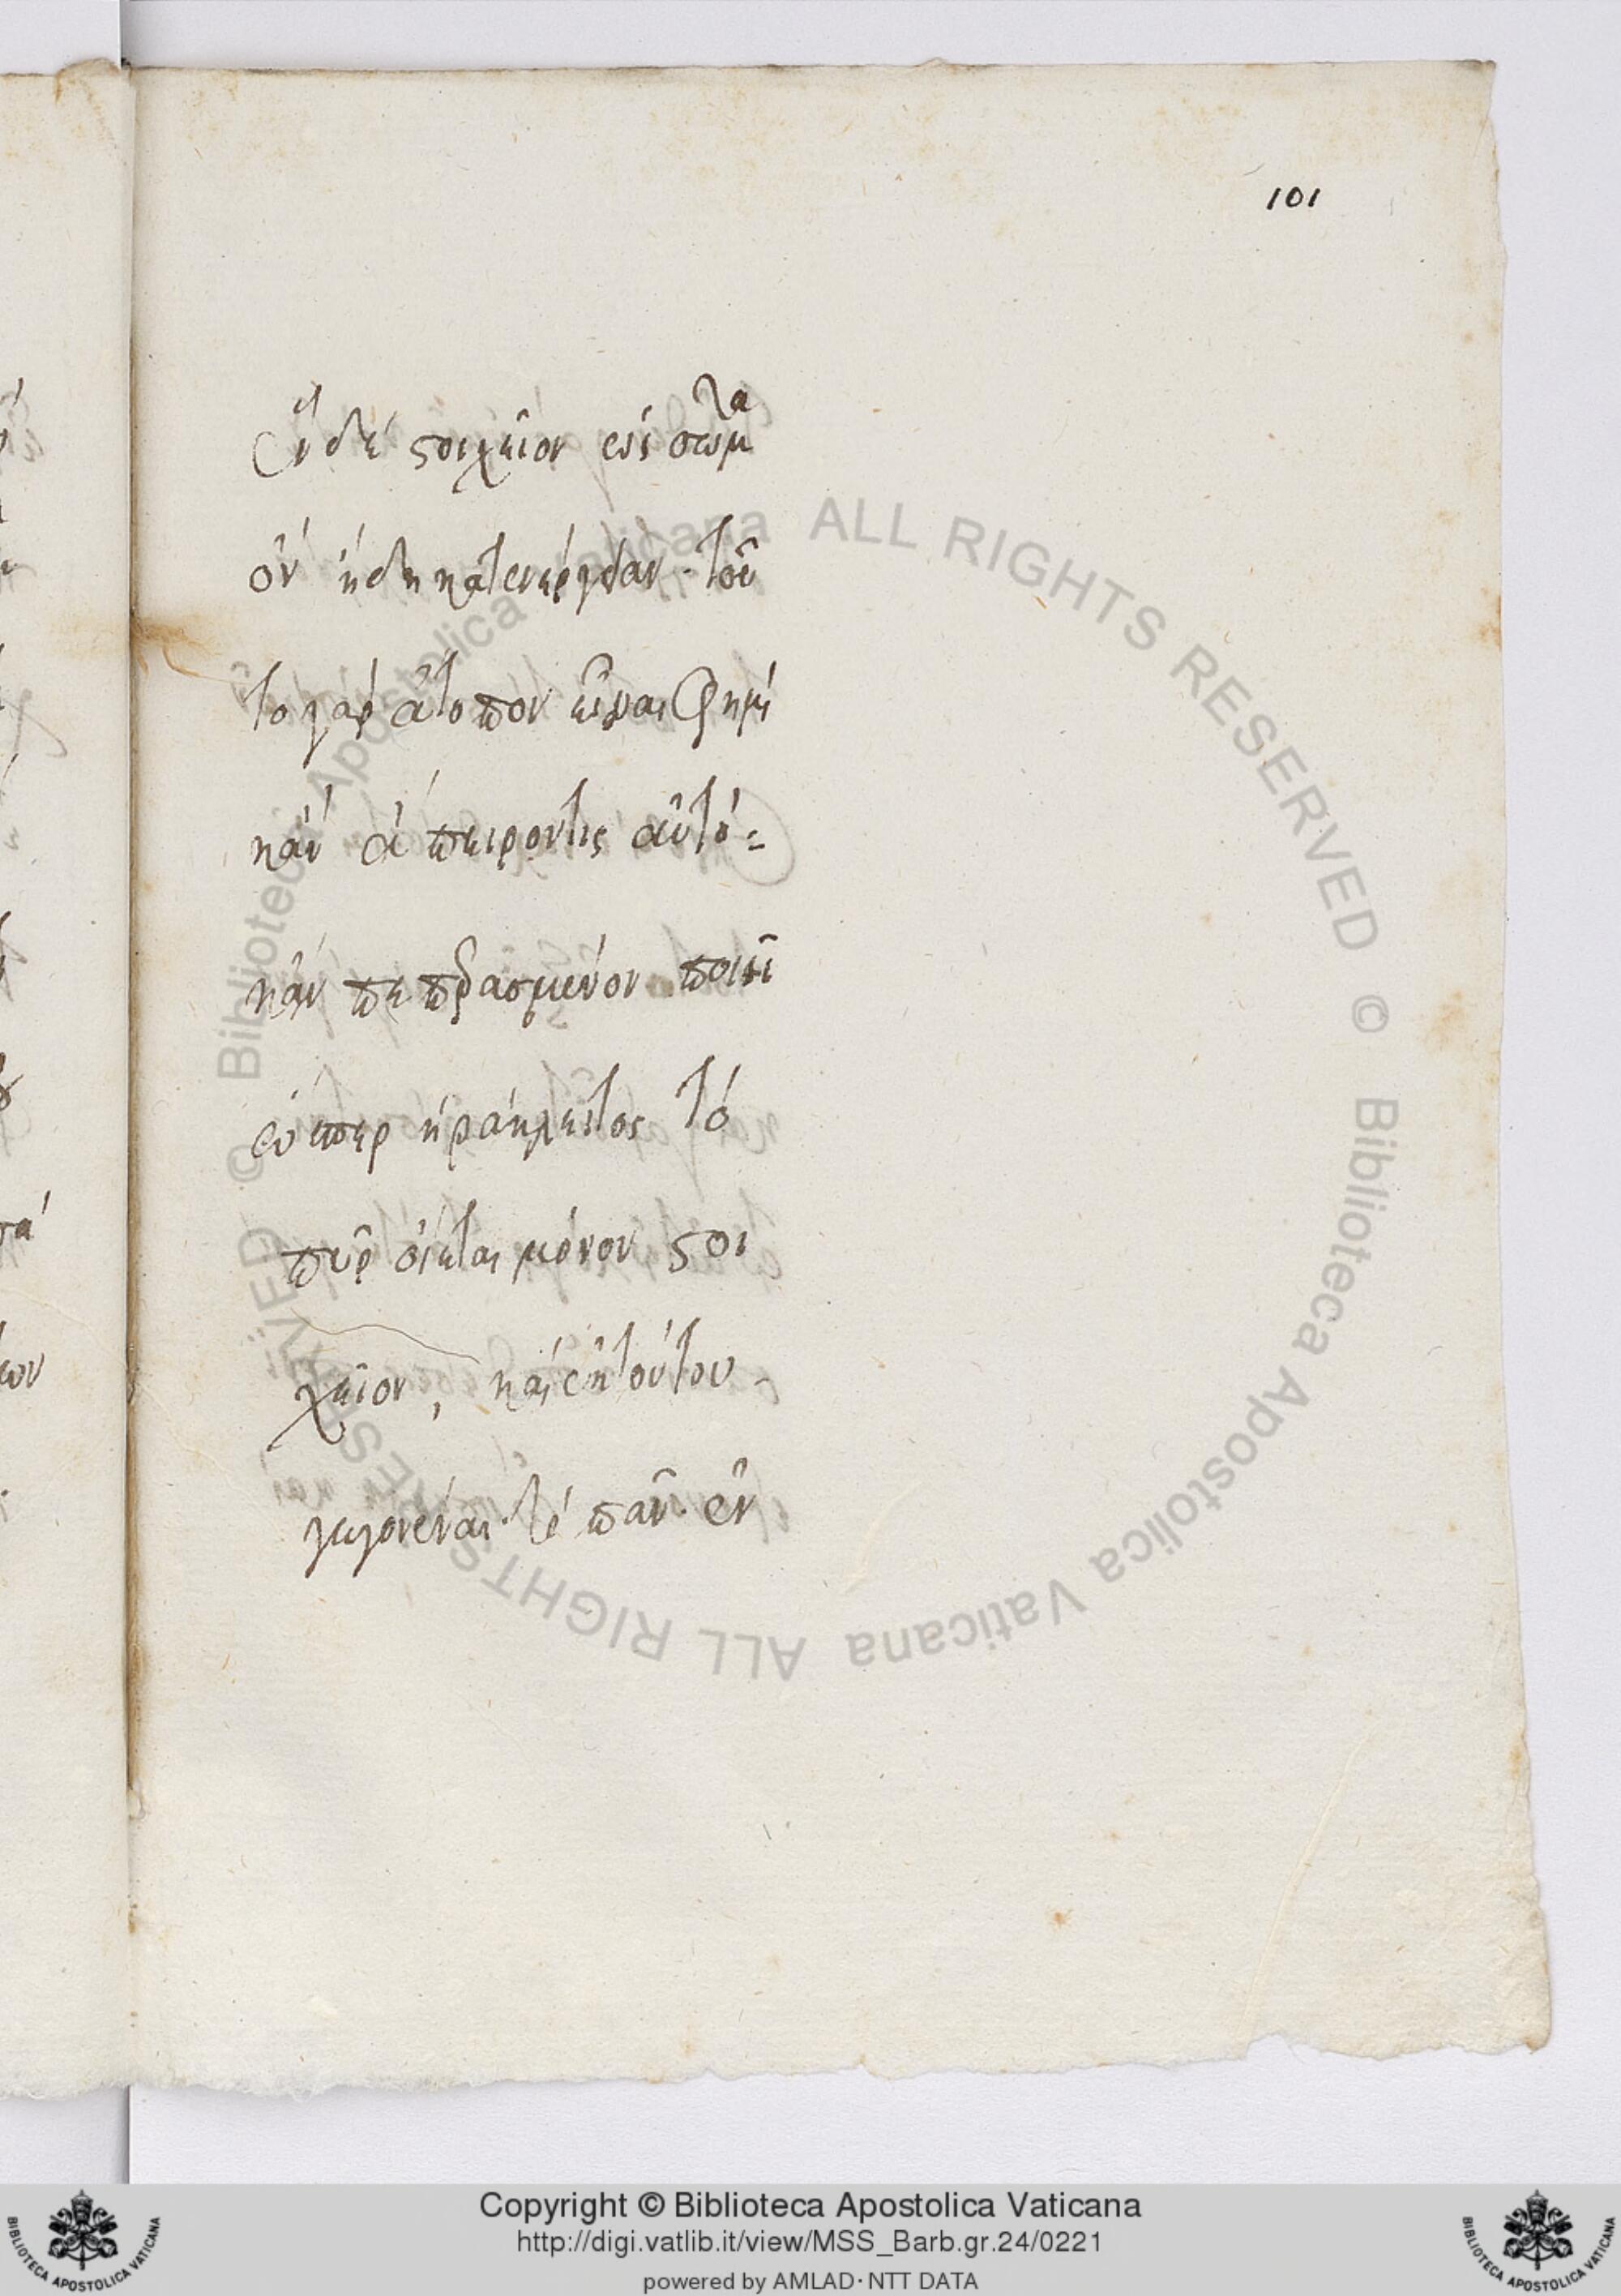 101
Εἰ δὲ στοιχεῖον ἐστὶ σῶμα
ὂν ἤδη κατενεργείαν. τοῦ
το γὰρ ἄτοπον εἶναι φημὶ
κἂν ἄπειρόν τις αὐτό=
κἂν πεπερασμένον ποιεῖ
ὥσπερ ἡράκλειτος τὸ
πῦρ οἴεται μόνον στοι
χεῖον, καὶ ἐκ τούτου
γεγονέναι. τὸ πᾶν. ἓν
© Biblioteca Apostolica Vaticana ALL RIGHTS RESERVED © Biblioteca Apostolica Vaticana ALL RIGHTS RESERVED
Copyright © Biblioteca Apostolica Vaticana
http://digi.vatlib.it/view/MSS_Barb.gr.24/0221
powered by AMLAD·NTT DATA
BIBLIOTECA APOSTOLICA VATICANA
BIBLIOTECA APOSTOLICA VATICANA